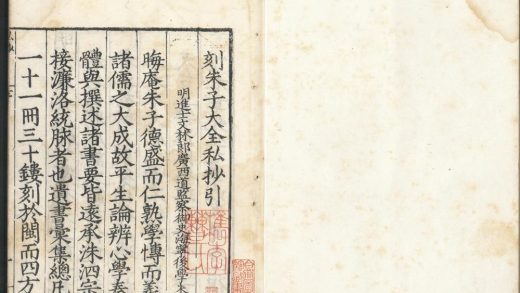 刻朱子大全私抄引
明進士文林郎廣西道監察御史海寧後學朱
晦庵朱子德盛而仁熟學博而義
諸儒之大成故平生論辨心學奏
體與撰述諸書要皆遠承洙泗宗
接濂洛統脉者也遺書彙集總凡
一十一冊三十鏤刻於閩而四方